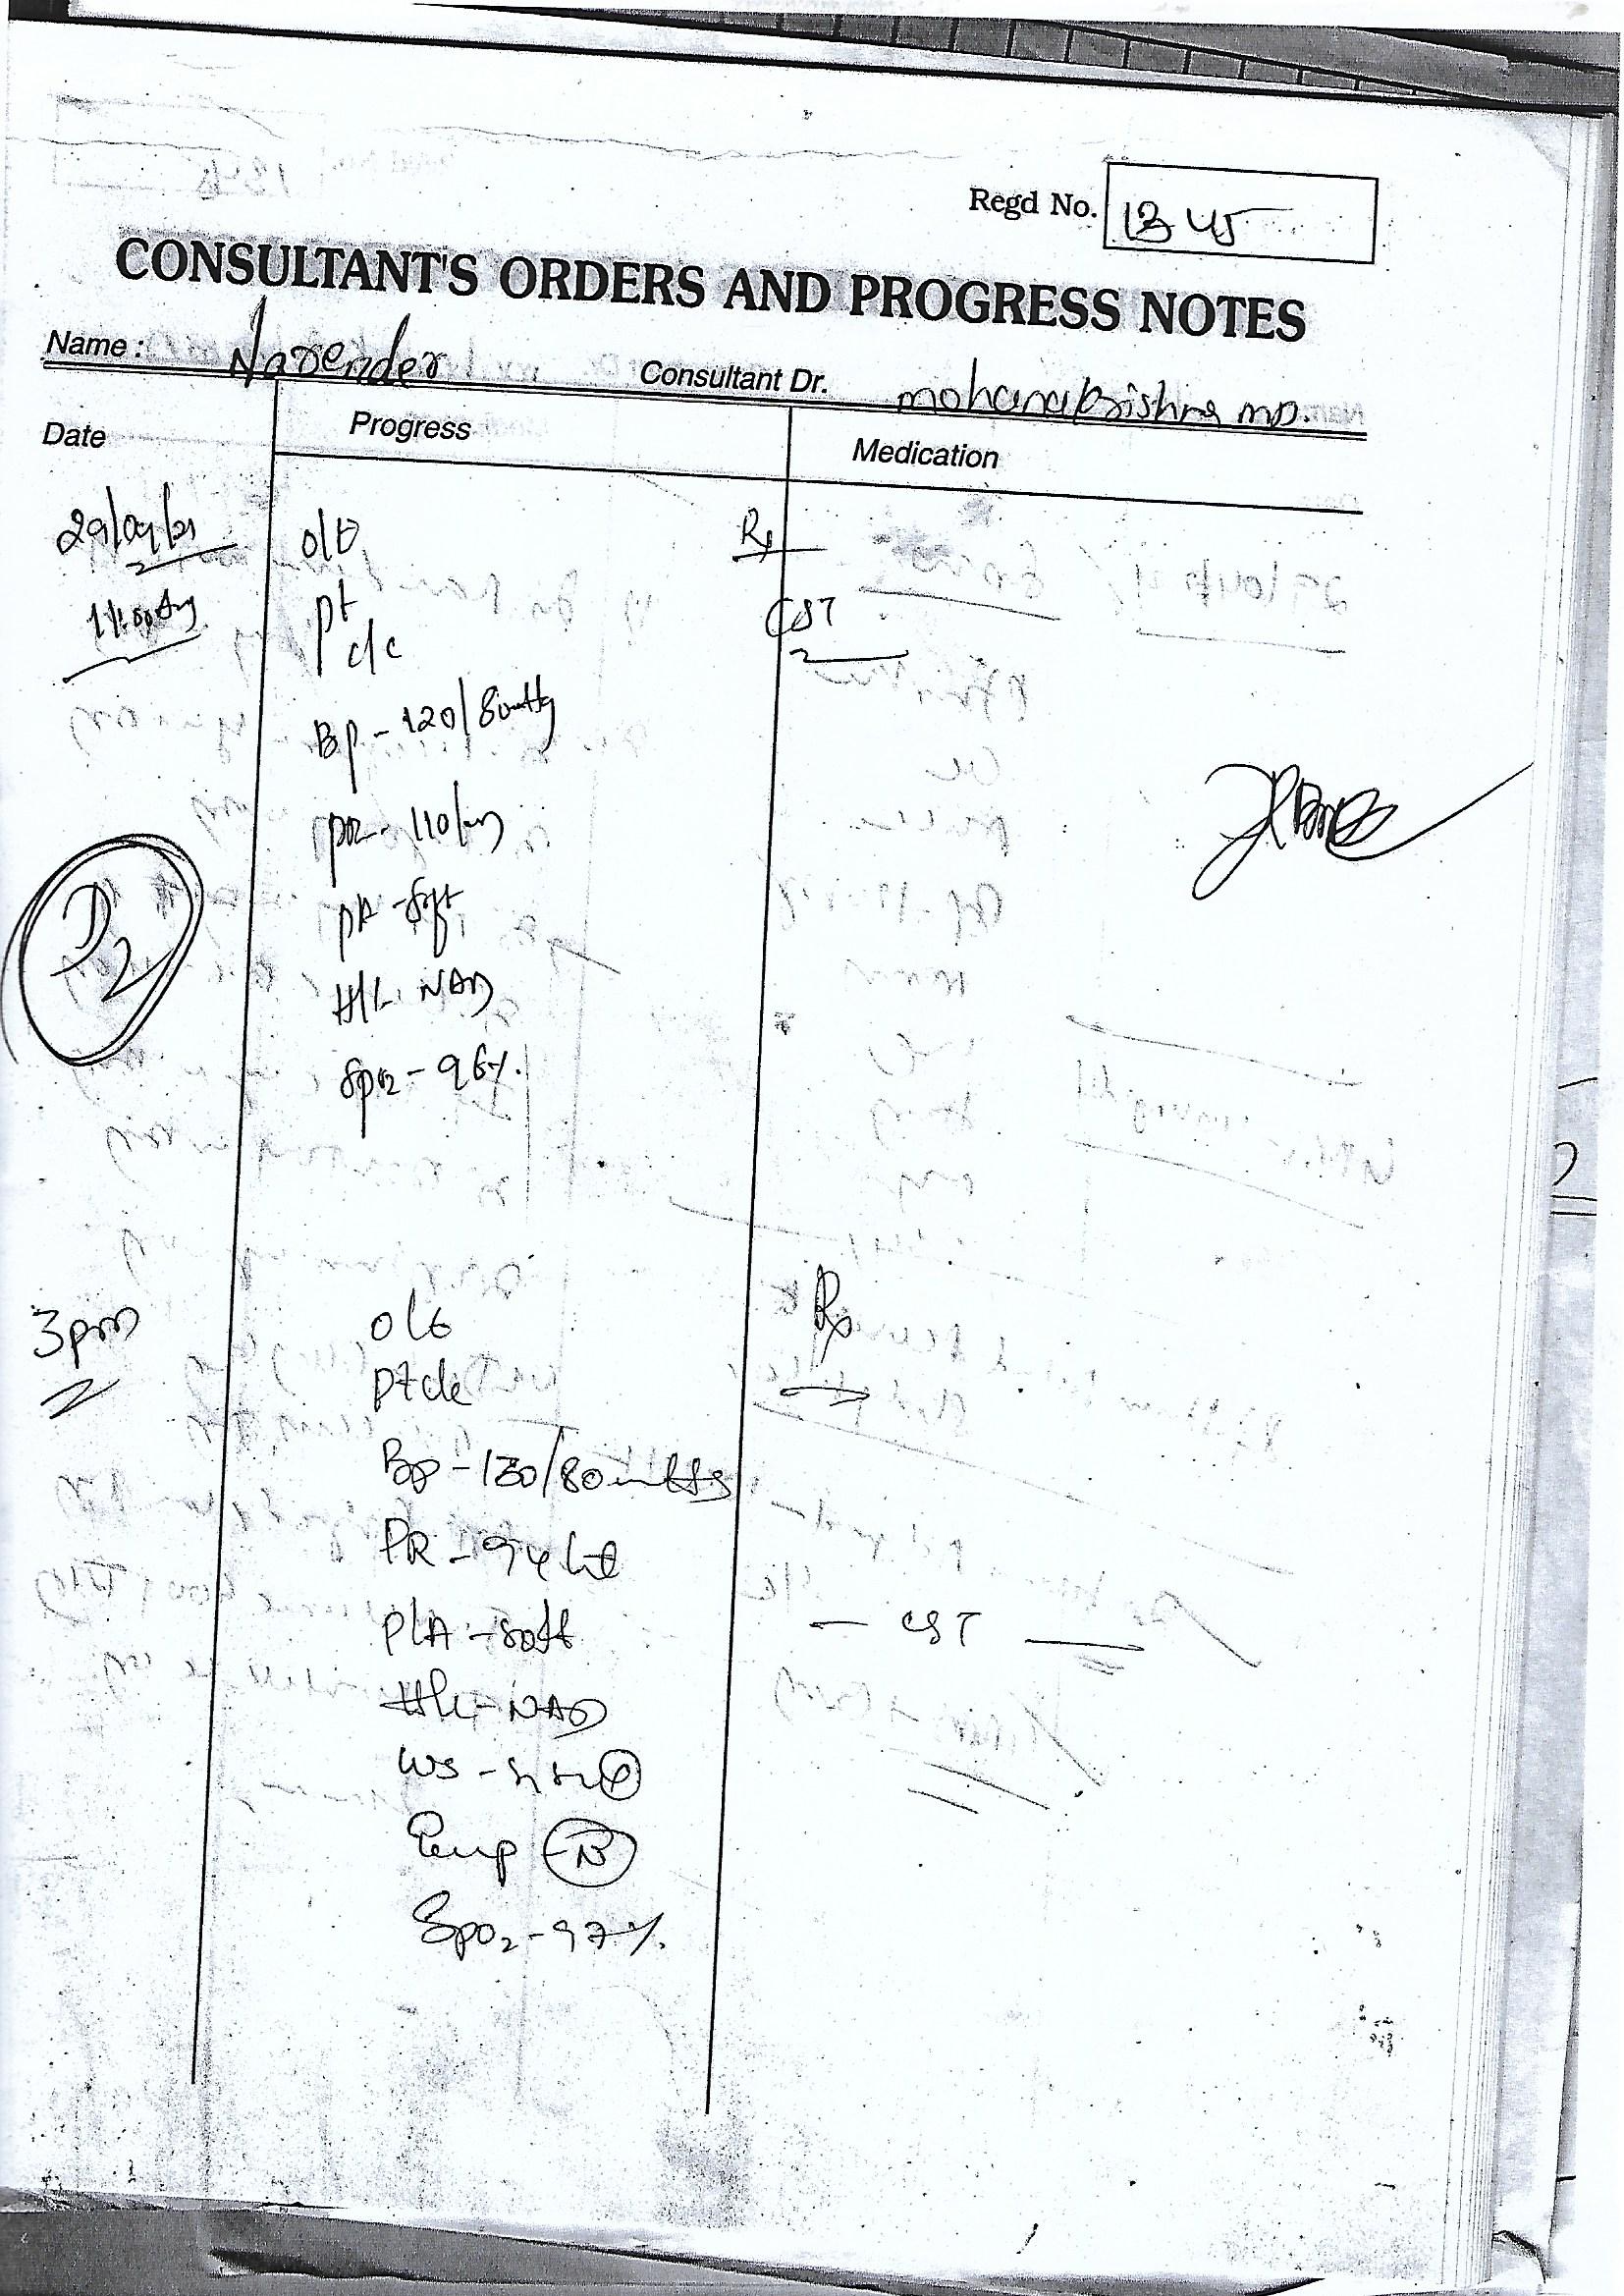 Regd No. 1345
CONSULTANT'S ORDERS AND PROGRESS NOTES
Name : Narender Consultant Dr. mohanakrishna MD.
Date Progress Medication
29/04/21 o/E Rx
11:00Am pt CST
c/c
Bp - 120/80mmHg
PR - 110/m
D2
PA - soft
H/L. NAD
SpO2 - 96%.
3pm O/E Rx
Pt c/c
Bp - 130/80mmHg
PR - 94 bt
P/A - soft - CST
H/L - NAD
Temp - N
SpO2 - 97%.